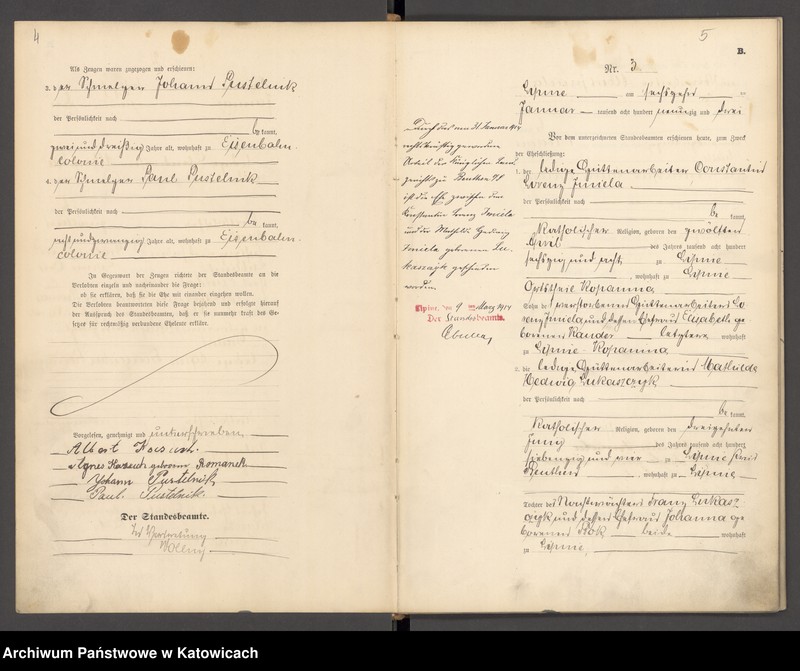 4
Als Zeugen waren zugezogen und erschienen:
3. der Schmelzer Johann Pustelnik
der Persönlichkeit nach
be kannt,
zweiunddreißig Jahre alt, wohnhaft zu Eisenbahn-
colonie
4. der Schmelzer Paul Pustelnik
der Persönlichkeit nach
be kannt,
achtundzwanzig Jahre alt, wohnhaft zu Eisenbahn-
colonie
In Gegenwart der Zeugen richtete der Standesbeamte an die
Verlobten einzeln und nacheinander die Frage:
ob sie erklären, daß sie die Ehe mit einander eingehen wollen.
Die Verlobten beantworteten diese Frage bejahend und erfolgte hierauf
der Ausspruch des Standesbeamten, daß er sie nunmehr kraft des Ge-
setzes für rechtmäßig verbundene Eheleute erkläre.
Vorgelesen, genehmigt und unterschrieben
Albert
Agnes geborene Romanek
Johann Pustelnik
Paul Pustelnik.
Der Standesbeamte.
In Vertretung
5
B.
Nr. 3
Lipine am sechszehnten
Januar tausend acht hundert neunzig und drei
Vor dem unterzeichneten Standesbeamten erschienen heute, zum Zweck
der Eheschließung:
1. der ledige Hüttenarbeiter Constantin
Lorenz Imiela
der Persönlichkeit nach
be kannt,
katholischer Religion, geboren den zwölften
April des Jahres tausend acht hundert
sechszig und acht zu Lipine
, wohnhaft zu Lipine
Ortstheil Kopanina
Sohn des verstorbenen Hüttenarbeiters Lo-
renz Imiela und dessen Ehefrau Elisabeth ge-
borenen letztere wohnhaft
zu Lipine Kopanina
2. die ledige Hüttenarbeiterin Mathilde
Hedwig Lukaszczyk
der Persönlichkeit nach
be kannt,
katholischer Religion, geboren den dreizehnten
Juny des Jahres tausend acht hundert
siebenzig und vier zu Lipine Kreis
Beuthen , wohnhaft zu Lipine
Tochter des Nachtwächters Franz Lukasz-
czyk und dessen Ehefrau Johanna ge-
borenen beide wohnhaft
zu Lipine
Durch das am 21. Januar 1914
rechtskräftig gewordene
Urteil des Königlichen Land-
gerichts zu Beuthen O/S
ist die Ehe zwischen dem
Konstantin Lorenz Imiela
und der Mathilde Hedwig
Imiela geborenen Lu-
kaszczyk geschieden
worden.
Lipine, den 9 ten März 1914
Der Standesbeamte.
Archiwum Państwowe w Katowicach